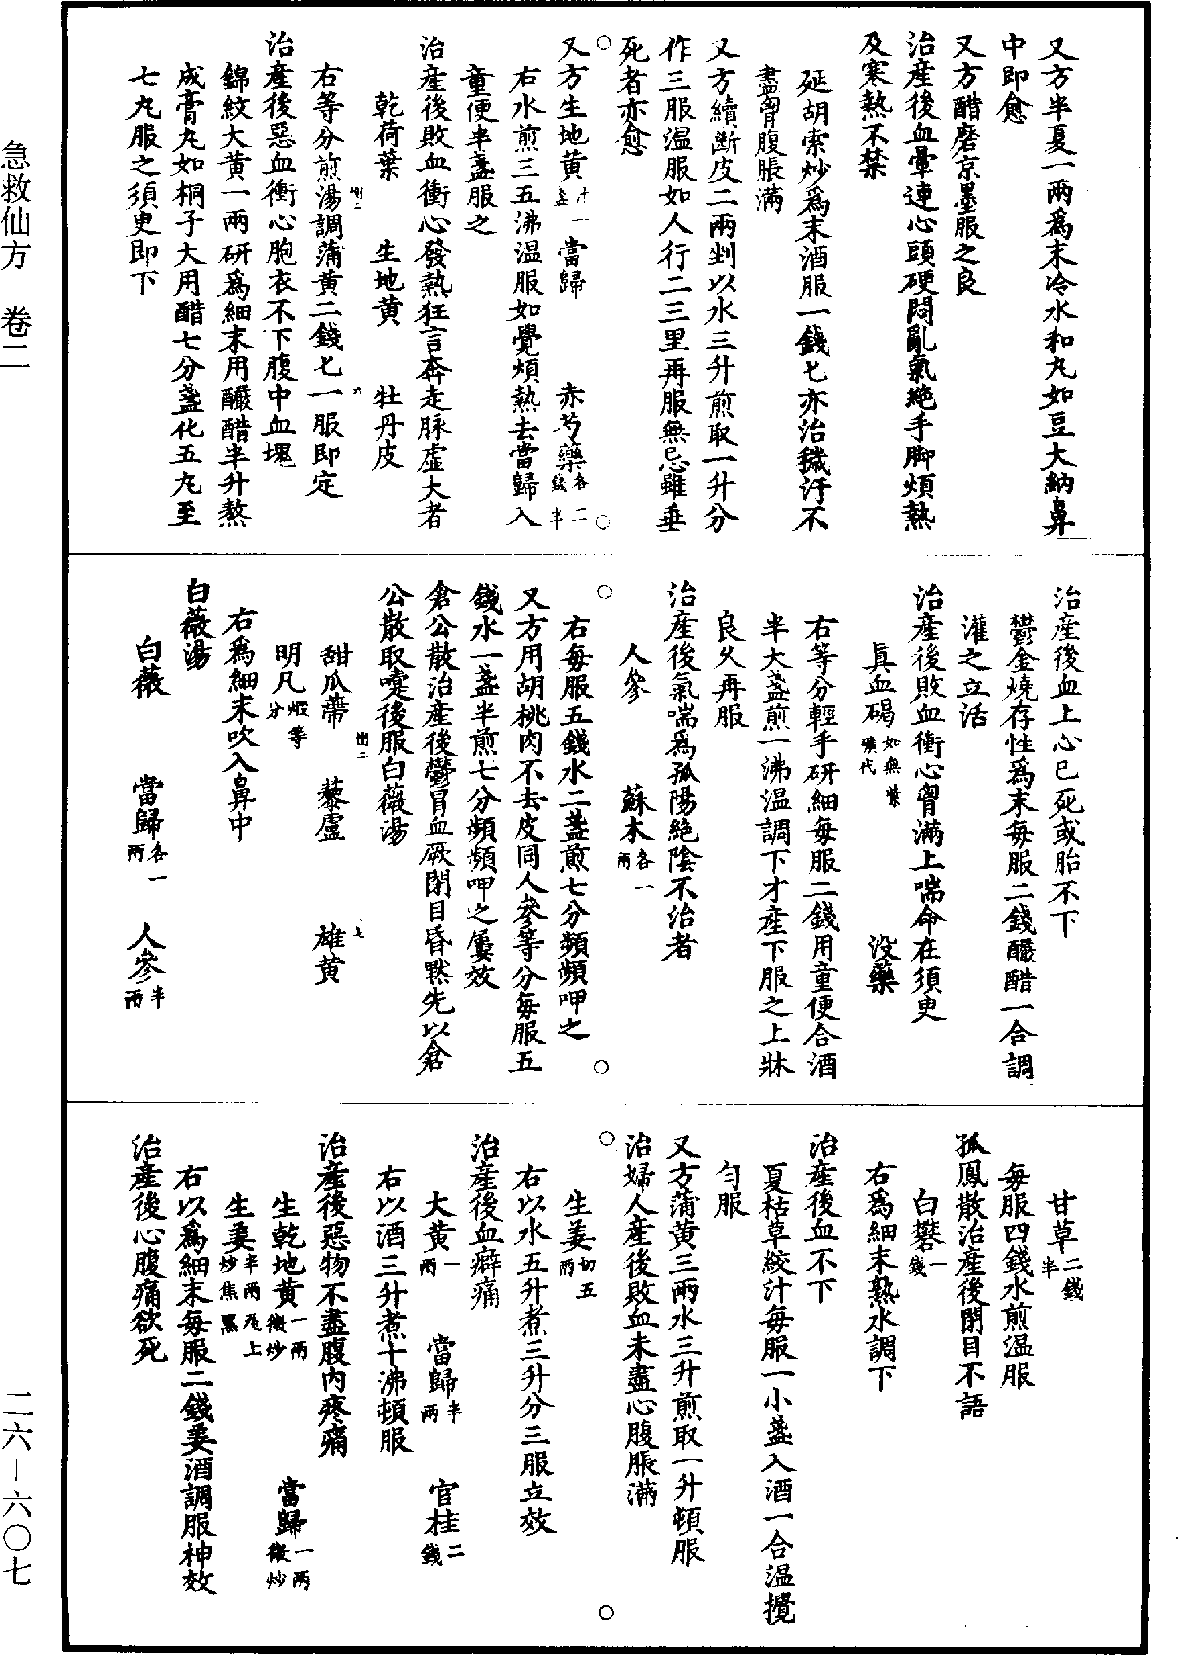 又方半夏一兩爲末冷水和丸如豆大納鼻
中即愈
又方醋磨京墨服之良
治產後血暈連心頭硬悶亂氣絶手脚煩熱
及寒熱不禁
延胡索炒爲末酒服一錢匕亦治穢汙不
盡胷腹脹滿
又方續斷皮二兩剉以水三升煎取一升分
作三服温服如人行二三里再服無忌雖垂
死者亦愈
又方生地黄 當歸 赤芍藥各二錢半
右水煎三五沸温服如覺煩熱去當歸入
童便半盞服之
治產後敗血衝心發熱狂言奔走脉虚大者
乾荷葉 生地黄 牡丹皮
右等分煎湯調蒲黄二錢匕一服即定
治產後惡血衝心胞衣不下腹中血塊
錦紋大黄一兩研爲細末用釅醋半升熬
成膏丸如桐子大用醋七分盞化五丸至
七丸服之須臾即下
治產後血上心已死或胎不下
鬱金燒存性爲末每服二錢釅醋一合調
灌之立活
治產後敗血衝心胷滿上喘命在須臾
眞血碣如無紫礦代 没藥
右等分輕手研細每服二錢用童便合酒
半大盞煎一沸温調下才產下服之上牀
良久再服
治產後氣喘爲孤陽絶陰不治者
人參 蘇木各一兩
右每服五錢水二盞煎七分頻頻呷之
又方用胡桃肉不去皮同人參等分每服五
錢水一盞半煎七分頻頻呷之屢效
倉公散治產後鬱冒血厥閉目昏黙先以倉
公散取嚏後服白薇湯
甜瓜蔕 藜蘆 雄黄
明凡煅等分
右爲細末吹入鼻中
白薇湯
白薇 當歸各一兩 人參半兩
甘草二錢半
每服四錢水煎温服
孤鳳散治產後閉目不語
白礬一錢
右爲細末熟水調下
治產後血不下
夏枯草絞汁每服一小盞入酒一合温攪
匀服
又方蒲黄三兩水三升煎取一升頓服
治婦人產後敗血未盡心腹脹滿
生姜切五兩
右以水五升煮三升分三服立效
治產後血癖痛
大黄一兩 當歸半兩 官桂二錢
右以酒三升煮十沸頓服
治產後惡物不盡腹内疼痛
生乾地黄一兩微炒 當歸一兩微炒
生姜半兩瓦上炒焦黑
右以爲細末每服二錢姜酒調服神效
治產後心腹痛欲死
急救仙方 卷二
二六—六〇七